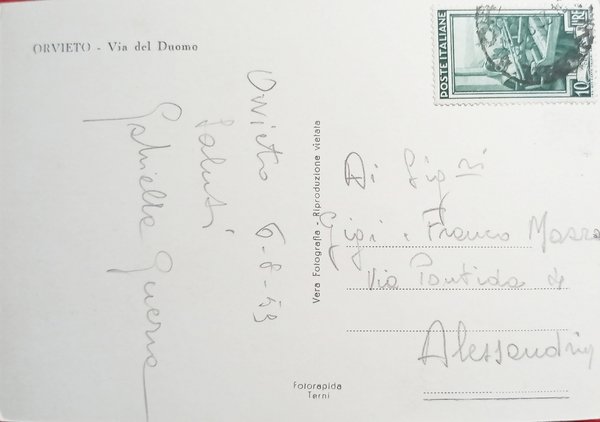 ORVIETO - Via del Duomo
Orvieto 6-8-53
Saluti
Gabriella Guerra
Vera Fotografia - Riproduzione vietata
Fotorapida
Terni
POSTE ITALIANE
10 LIRE
Gigi e Franco
Via Pontida 4
Alessandria